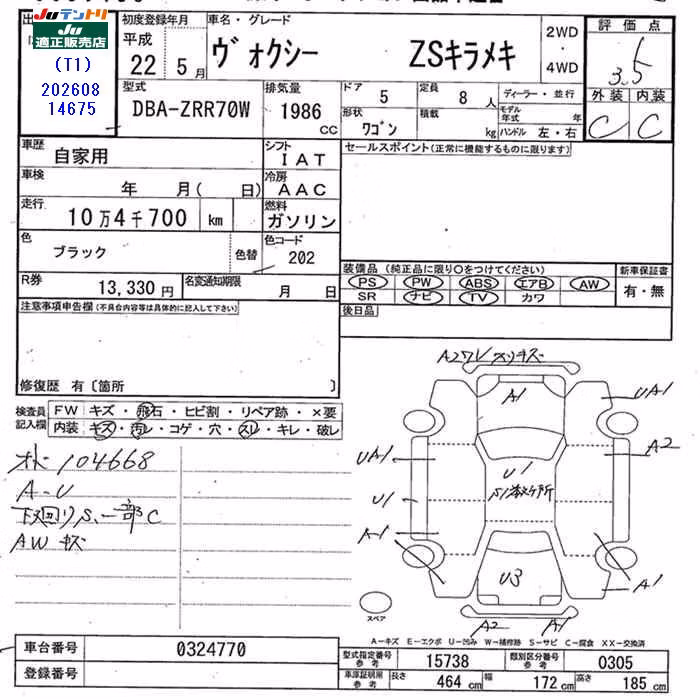 JUテントリ
JU適正販売店
(T1)
202608
14675
初度登録年月
平成
22 5 月
車名・グレード
ヴォクシー ZSキラメキ
2WD
・
4WD
評価点
3.5
外装 内装
C C
型式
DBA-ZRR70W
排気量
1986
cc
ドア 5
定員 8 人
ディーラー・並行
形状 ワゴン
積載 kg
モデル年式 年
ハンドル 左・右
車歴
自家用
シフト
IAT
セールスポイント(正常に機能するものに限ります)
車検
年 月( 日)
冷房
AAC
走行
10万4千700 km
燃料
ガソリン
色
ブラック
色替
色コード
202
R券
13,330円
名変通知期限
月 日
装備品(純正品に限り○をつけてください)
PS PW ABS エアB AW
SR ナビ TV カワ
新車保証書
有・無
後日品
注意事項申告欄(不具合内容等は具体的に記入して下さい)
修復歴 有〔箇所 〕
検査員記入欄
FW キズ・飛石・ヒビ割・リペア跡・×要
内装 キズ・汚レ・コゲ・穴・スレ・キレ・破レ
104668
A-U
下回りS、一部C
AW キズ
A2 U スリキズ
A1
UA1
A2
UA1
U1
U1
A1
U3
A1
A2 A1
スペア
A-キズ E-エクボ U-凹み W-補修跡 S-サビ C-腐食 XX-交換済
車台番号 0324770
登録番号
型式指定番号 参考 15738
類別区分番号 参考 0305
車庫証明用 参考 長さ 464 cm 幅 172 cm 高さ 185 cm